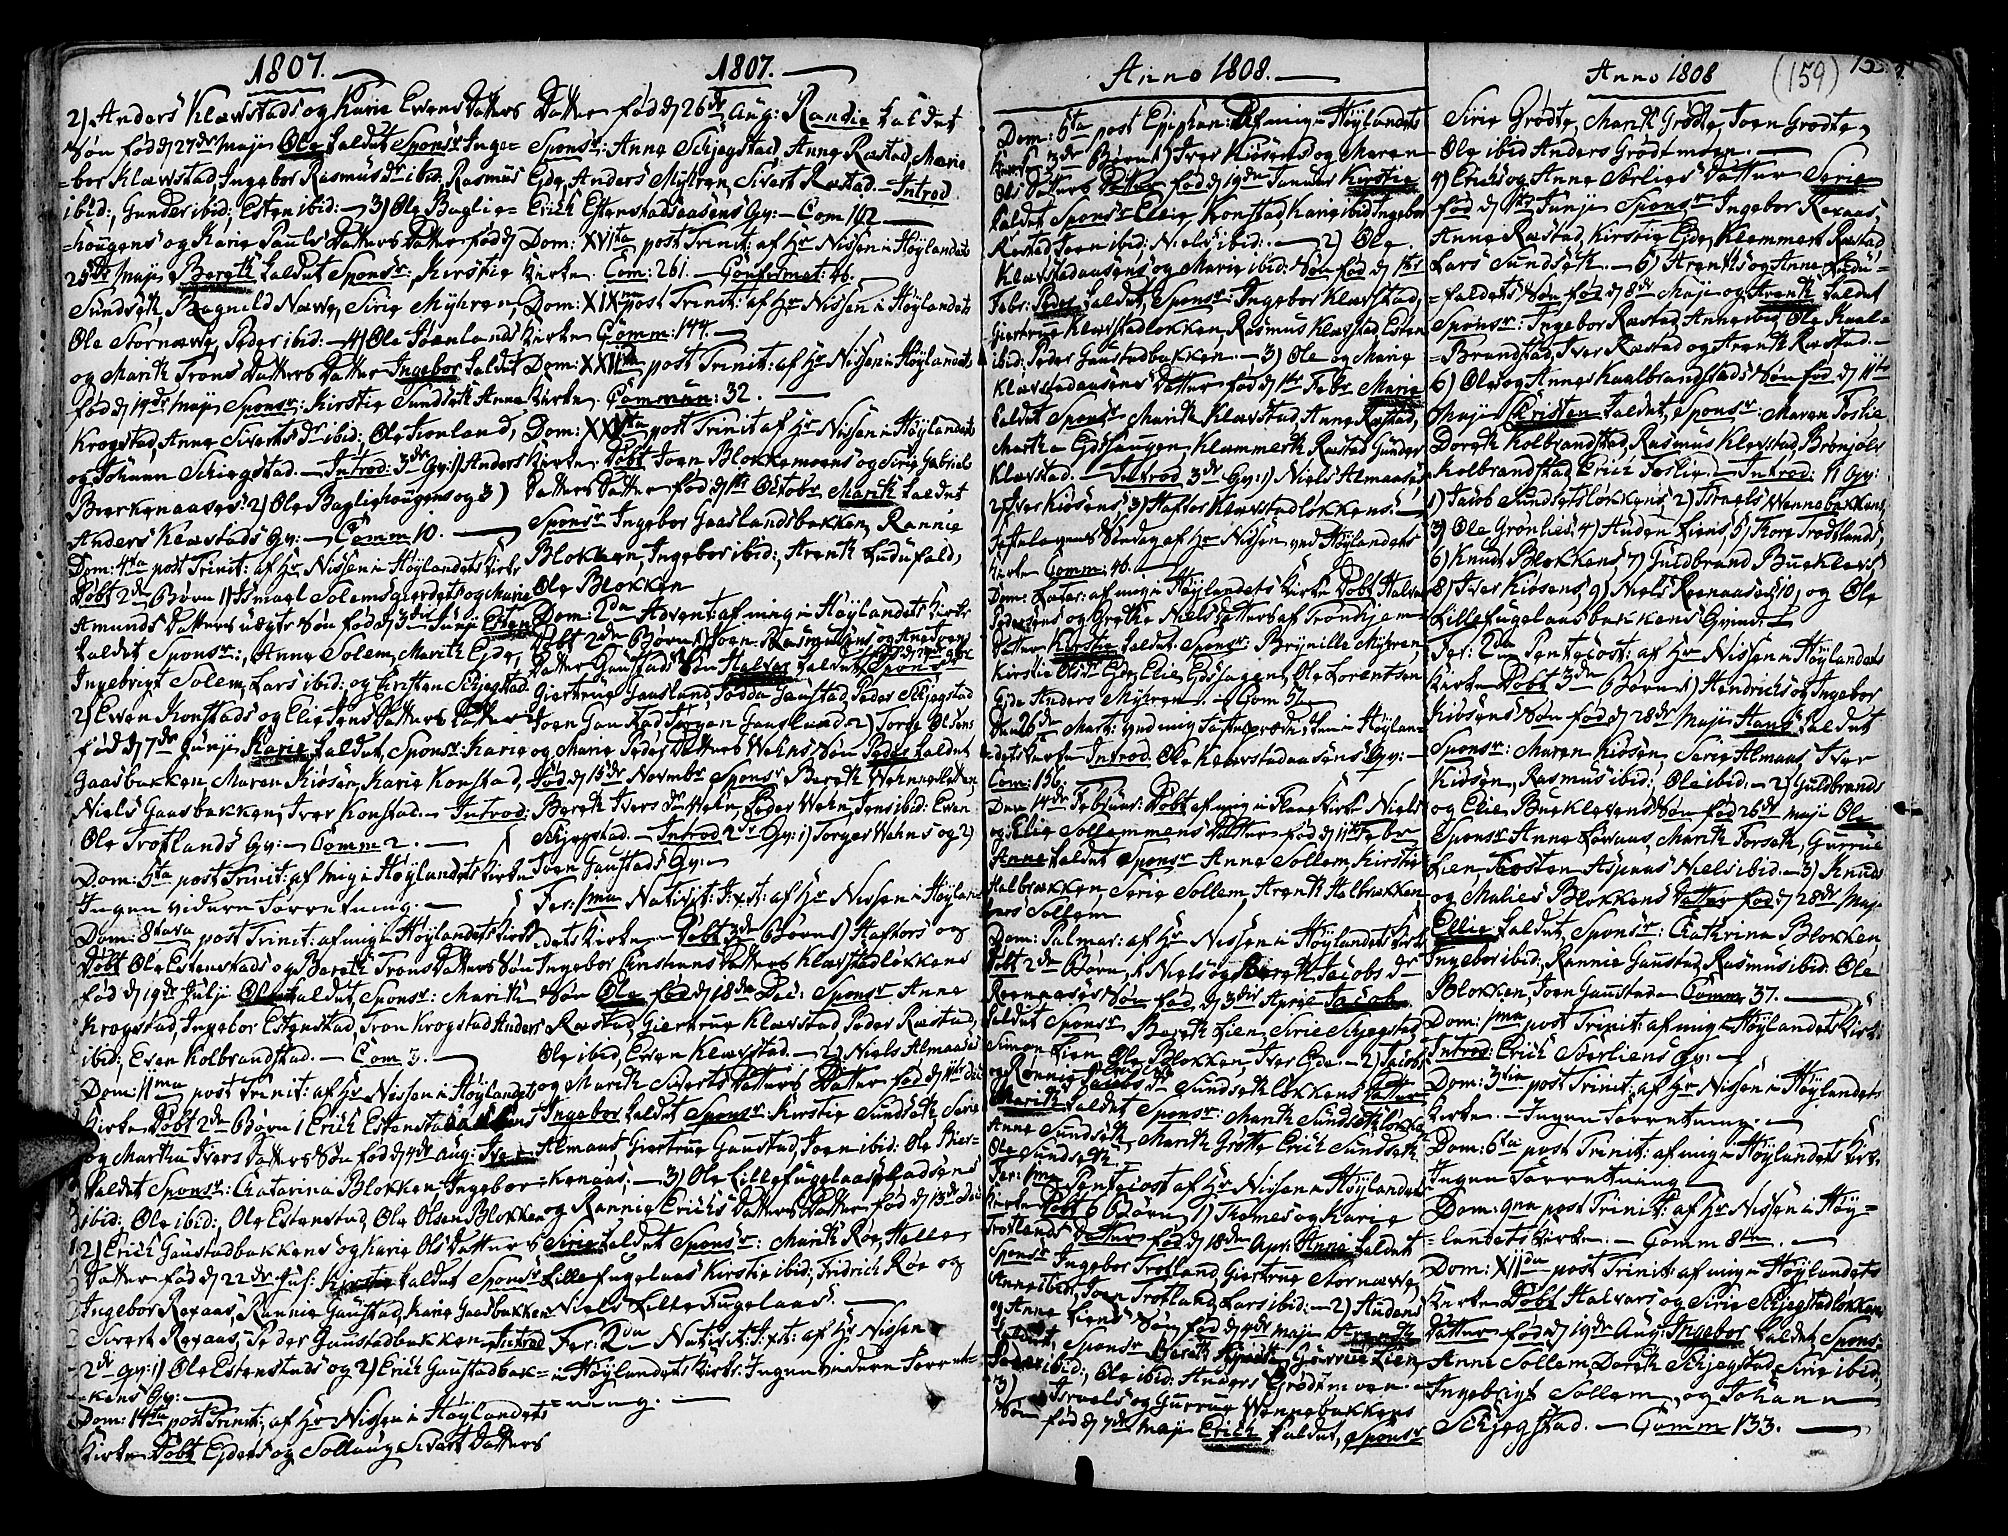 1807.
2) Anders Klævstads og Karie Evens Datters
Søn fød d 27de Maji Ole kaldet Sponsr Inge=
=bor Klævstad, Ingebor Rasmusdr ibid: Rasmus
ibid: Gunder ibid; Esten ibid: — 3) Ole Baglie=
=hougens og Karie Pauls Datters Datter fød d
25de Maji Bereth kaldet Sponsr: Kirstie
Sundseth, Ragnild Næwe, Sirie Myhren,
Ole Stornæwe, Peder ibid: — 4) Ole Joenlands
og Marith Trons Datters Datter Ingebor kaldet
fød d 19de Maji Sponsr: Kirstie Sundseth Anne
Krogstad, Anne Siverts dr ibid: Ole Tronland,
og Johann Schiegstad. — Introd: 3de Qv: 1) Anders
Bierkenaases: 2) Ole Bagliehougens og 3)
Anders Klævstads Qv: — Comm 10. —
Dom: 4ta post Trinit: af Hr Nissen i Høylandets Kirke
Døbt 2de Børn 1) Ismael Solemsgierdets og Marie
Amunds Datters uægte Søn fød d 3die Junj Esten
kaldet Sponsr:, Anne Solem, Marith Eide,
Ingebrigt Solem, Lars ibid: og Kristen Schiegstad.
2) Ewen Konstads og Elie Jens Datters Datter
fød d 7de Junji Karie kaldet, Sponsr: Karie
Gaasbakken, Maren Kiøsen, Karie Konstad,
Niels Gaasbakken, Iver Konstad. — Introd:
Ole Trotlands Qv: — Comm 2. —
Dom: 5ta post Trinit: af mig i Høylandets Kirke
Ingen videre Forretning. —
Dom: 8tava post Trinit: af mig i Høylandets Kirke
Døbt Ole Estenstads og Bereth Trons Datters Søn
fød d 19de Julji Ole kaldet, Sponsr: Marith
Krogstad, Ingebor Estenstad, Tron Krogstad Anders
ibid:, Even Kolbrandstad. — Com 3. —
Dom: 11ma post Trinit: af Hr Nissen i Høylandets
Kirke Døbt 2de Børn 1 Erich Estenstadaasens
og Martha Ivers Datters Søn fød d 4de Aug: Iver
kaldet Sponsr: Catarina Blokken, Ingebor
ibid:, Ole ibid:, Ole Estenstad, Ole Olsen Blokken
2) Erich Gaustadbakkens og Karie Ols Datters
Datter fød d 22de Jul: Kirstie kaldet Sponsr
Ingebor Rexaas, Rannie Gaustad, Karie Gaasbakken
Sivert Rexaas, Peder Gaustadbakken Introd
2de Qv: 1) Ole Estenstads og 2) Erich Gaustadbak=
=kens Qv: —
Dom: 14ta post Trinit: af Hr Nissen i Høylandets
Kirke Døbt Ejders og Sollaug Sivert Datters
1807.
Datter fød d 26de Aug: Randie kaldet
Sponsr: Anne Schiegstad, Anne Ræstad, Marie
Eide, Anders Myhren, Sivert Ræstad. — Introd
Erich Estenstadaasens Qv: — Com 162 —
Dom: XVIta post Trinit: af Hr Nissen i Høylandets
Kirke. Com: 261. — Confirmat: 46.
Dom: XIXna post Trinit: af Hr Nissen i Høylandets
Kirke Comm: 144. —
Dom: XXIIda post Trinit: af Hr Nissen i Høylandets
Kirke. Commun: 32. —
Dom: XXVta post Trinit: af Hr Nissen i Høylandets
Kirke. Døbt Joen Blokkemoens og Sirie Gabriels
Datters Datter fød d 1ste Octobr Marith kaldet
Sponsr Ingebor Gaaslandsbakken, Rannie
Blokken, Ingebor ibid:, Arenth Ludufald,
Ole Blokken
Dom: 2da Advent: af mig i Høylandets Kirke
Døbt 2de Børn 1) Joen Rasmusens og Ane Joens
Datter Gaustads Søn Halvor kaldet Sponsr
Giertrue Gaasland, Todda Gaustad, Peder Schjegstad
Joen Gaustad Jørgen Gaasland 2) Torge Olsens
og Marie Peders Datters Wehns Søn Peder kaldet
fød d 15de Novembr Sponsr Bereth Wehnesletten,
Bereth Ivers dr Wehn, Peder Wehn, Jens ibid: Even
Schjegstad. — Introd 2de Qv: 1) Torger Wehns og 2)
Joen Gaustads Qv: —
Fer: 1ma Nativit: J:x:t: af Hr Nissen i Høylan
dets Kirke — Døbt 3de Børn 1) Hafthors og
Ingebor Christens Datters Klævstadløkkens
Søn Ole fød d 18de Dec: Sponsr Anne
Ræstad, Giertrue Klævstad, Peder Ræstad,
Ole ibid, Ewen Klævstad. — 2) Niels Almaases
og Marith Siverts Datters Datter fød d 11te Dec
Ingebor kaldet Sponsr: Kirstie Sundseth Serie
Almaas, Giertrue Gaustad, Joen ibid: Ole Bier=
=kenaas, — 3) Ole Lillefugelaaspladsens
og Rannie Erichs Datters Datter fød d 13de Dec
Sirie kaldet Sponsr: Marith Røe, Helle
Lillefugelaas Kirstie ibid:, Fridrich Røe og
Niels Lillefugelaas. —
Fer: 2da Nativit: J:x:t: af Hr Nissen
i Høylandets Kirke: Ingen videre Forret=
=ning. —
Anno 1808. —
Dom: 5ta post Epiphan: af mig i Høylandets
Kirke 3de Børn 1) Iver Kiøsens og Maren
Ols Datters Datter fød d 19de Januar Kirstie
kaldet Sponsr Elie Konstad, Karie ibid Ingebor
Ræstad Joen ibid: Niels ibid: — 2) Ole
Klævstadaasens og Marie ibid: Søn fød d 1ste
Febr: Peder kaldet, Sponsr: Ingebor Klævstad,
Giertrue Klævstadløkken, Rasmus Klævstad Esten
ibid: Peder Gaustadbakken. — 3) Ole og Marie
Klævstadaasens Datter fød d 1ste Febr Marie
kaldet Sponsr Marith Klævstad, Anne Ræstad,
Martha Eidshaugen Klemmeth Ræstad Gunder
Klævstad. — Introd 3de Qv: 1) Niels Almaases
2 Iver Kiøsens, 3) Haftor Klævstadløkkens. —
Fastelagens Søndag af Hr Nissen ved Høylandets
Kirke Comm: 46. —
Dom: Lætar: af mig i Høylandets Kirke Døbt Halvor
Pedersens og Grethe Niels Datters af Trondhjem
Datter Kirstie kaldet Sponsr: Brynille Myhren
Kirstie Olsdr Eide, Elie Eidshagen, Ole Lorentsen
Eide Anders Myhren. — Com 57.
Den 26de Marti: ved mig Fasteprædiken i Høylan=
dets Kirke Introd: Ole Klævstadaasens Qv: —
Com: 156. —
Den 14de Februar: Døbt af mig i Flaae Kirke Niels
og Elie Sollemmens Datter fød d 11te Febr
Anne kaldet Sponsr Anne Sollem, Kirstie
Halbrækken, Serie Sollem, Arenth Halbrækken
Lars Sollem
Dom: Palmar: af Hr Nissen i Høylandets Kirke
Døbt 2de Børn, 1 Niels og Bereth Jacobs dr
Reenaases Søn fød d 3die April Jacob
kaldet Sponsr Bereth Lien, Serie Schjegstad,
Simon Lien Ole Blokken Iver Eide. — 2) Jacobs
og Rønnie Jacobs dr Sundsethløkkens Datter
Marith kaldet Sponsr: Marith Sundsethløkken
Anne Sundseth, Marith Grøtte Erich Sundseth
Ole Sundseth.
Fer: 1ma Pentecost af Hr Nissen i Høylandets
Kirke Døbt 6 Børn, 1) Thomes og Karie
Trotlands Datter fød d 18de Apr: Anne kaldet
Sponsr Ingebor Trotland Giertrue Stornæwe,
Anne ibid, Joen Trotland, Lars ibid: — 2) Audens
og Anne Liens Søn fød d 4de Maji Arenth
kaldet, Sponsr Gurrue Lien,
Peder ibid:, Ole ibid: Anders Grødtmoen. —
3) Israels og Gurrue Wennebakkens
Søn fød d 7de Maji Erich kaldet, Sponsr
Anno 1808
(159)
Sirie Grødte, Marith Grødte, Joen Grødte,
Ole ibid Anders Grødtmoen. —
4) Erichs og Anne Sørlies Datter Serie
fød d 1ste Junji Sponsr Ingebor Rexaas,
Anne Ræstad, Kirstie Eide, Klemmeth Ræstad
Lars Sundseth. — 5) Arenths og Anne Ludu=
=faldets Søn fød d 8de Maji og Arenth kaldet
Sponsr: Ingebor Ræstad, Anne ibid, Ole Kaal=
=Brandstad, Iver Ræstad og Arenth Ræstad. —
6) Ole og Annes Kaalbrandstads Søn fød d 11te
Maji Christen kaldet, Sponsr: Maren Foslie
Doreth Kolbrandstad, Rasmus Klevstad, Brønjolv
Kolbrandstad, Erich Foslie. — Introd: 11 Qv:
1) Jacob Sundsetsløkkens, 2) Israels Wennebakkens
3) Ole Grønlies, 4) Auden Liens, 5) Tore Trodtlands,
6) Knuds Blokkens, 7) Guldbrand Bueklevs
8) Iver Kiøsens, 9) Niels Reenaases, 10, og Ole
Lillefugelaasbakkens Qvind. —
Fer: 2da Pentecost: af Hr Nissen i Høylandets
Kirke Døbt 3de Børn 1) Hendrichs og Ingebor
Kiøsens Søn fød d 28de Maji Hans kaldet
Sponsr: Maren Kiøsen, Serie Almaas, Iver
Kiøsen, Rasmus ibid:, Ole ibid: — 2) Guldbrands
og Elie Bueklevens Søn fød 26de Maji Ole
Sponsr Anne Løvaas, Marith Forseth, Gurrue
Lien Torsten Aspaas Niels ibid. — 3) Knuds
og Malies Blokkens Datter fød d 28de Maji
Ellie kaldet, Sponsr: Cathrina Blokken
Ingebor ibid:, Rannie Gaustad, Rasmus ibid: Ole
Blokken, Joen Gaustad — Comm: 37. —
Dom: 1ma post Trinit: af mig i Høylandets Kirke
Introd: Erich Sørliens Qv: —
Dom: 3tia post Trinit: af Hr Nissen i Høylandets
Kirke. — Ingen Forretning. —
Dom: 6ta post Trinit: af mig i Høylandets Kirke
Ingen Forretning —
Dom: 9na post Trinit: af Hr Nissen i Høy=
=landets Kirke. — Comm 8te. —
Dom: XIIda post Trinit: af mig i Høylandets
Kirke Døbt Halvors og Sirie Schjegstadløkken
Datter fød d 19de Aug: Ingebor kaldet Spons:
Anne Sollem, Doreth Schjegstad, Sirie ibid,
Ingebrigt Sollem, og Johann
Schjegstad. — Comm 133. —